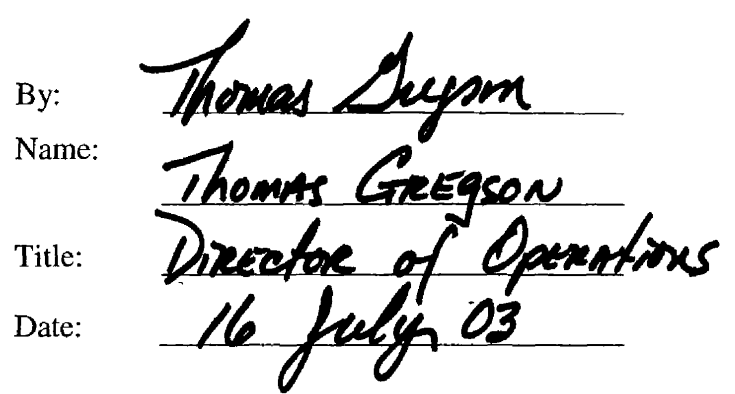 By: Thomas Gregson
Name: Thomas Gregson
Title: Director of Operations
Date: 16 July 03